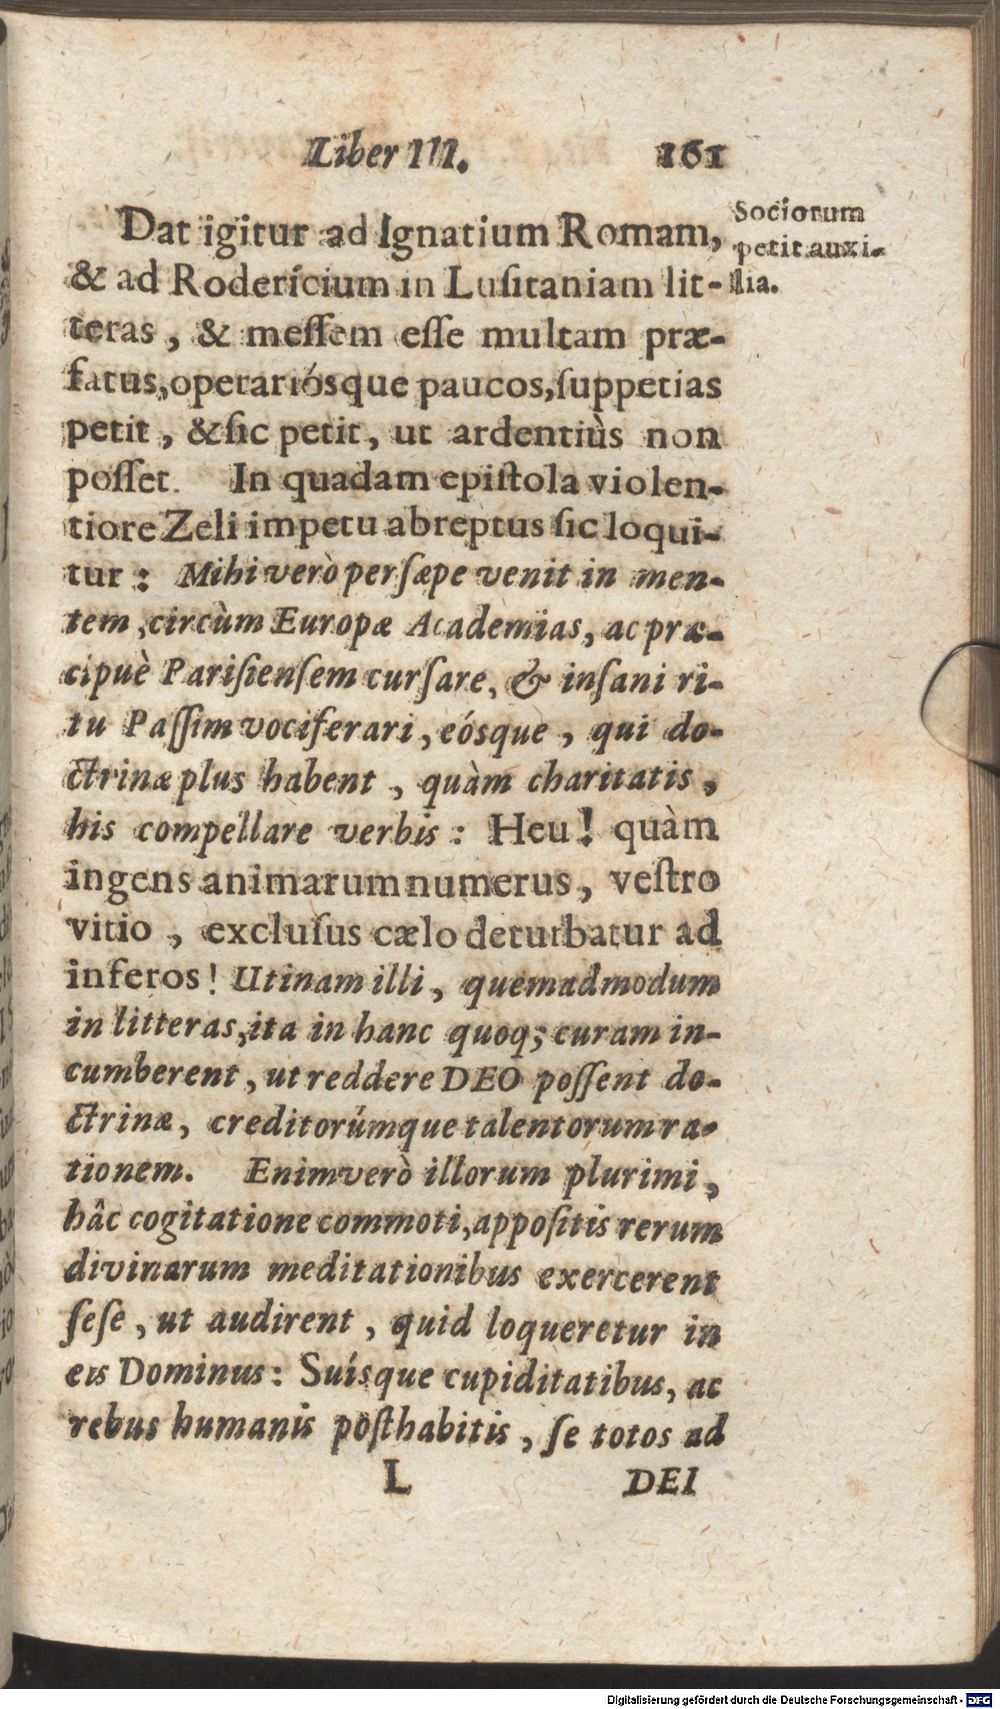 Liber III. 161
Dat igitur ad Ignatium Romam,
& ad Rodericium in Lusitaniam lit-
teras, & messem esse multam præ-
fatus, operariósque paucos, suppetias
petit, & sic petit, ut ardentiùs non
posset. In quadam epistola violen-
tiore Zeli impetu abreptus sic loqui-
tur: Mihi verò persæpe venit in men-
tem, circùm Europæ Academias, ac præ-
cipuè Parisiensem cursare, & insani ri-
tu Passim vociferari, eósque, qui do-
ctrinæ plus habent, quàm charitatis,
his compellare verbis: Heu! quàm
ingens animarum numerus, vestro
vitio, exclusus cælo deturbatur ad
inferos! Utinam illi, quemadmodum
in litteras, ita in hanc quoq; curam in-
cumberent, ut reddere DEO possent do-
ctrinæ, creditorúmque talentorum ra-
tionem. Enimverò illorum plurimi,
hâc cogitatione commoti, appositis rerum
divinarum meditationibus exercerent
sese, ut audirent, quid loqueretur in
eis Dominus: Suísque cupiditatibus, ac
rebus humanis posthabitis, se totos ad
L DEI
Sociorum
petit auxi-
lia.
Digitalisierung gefördert durch die Deutsche Forschungsgemeinschaft - DFG